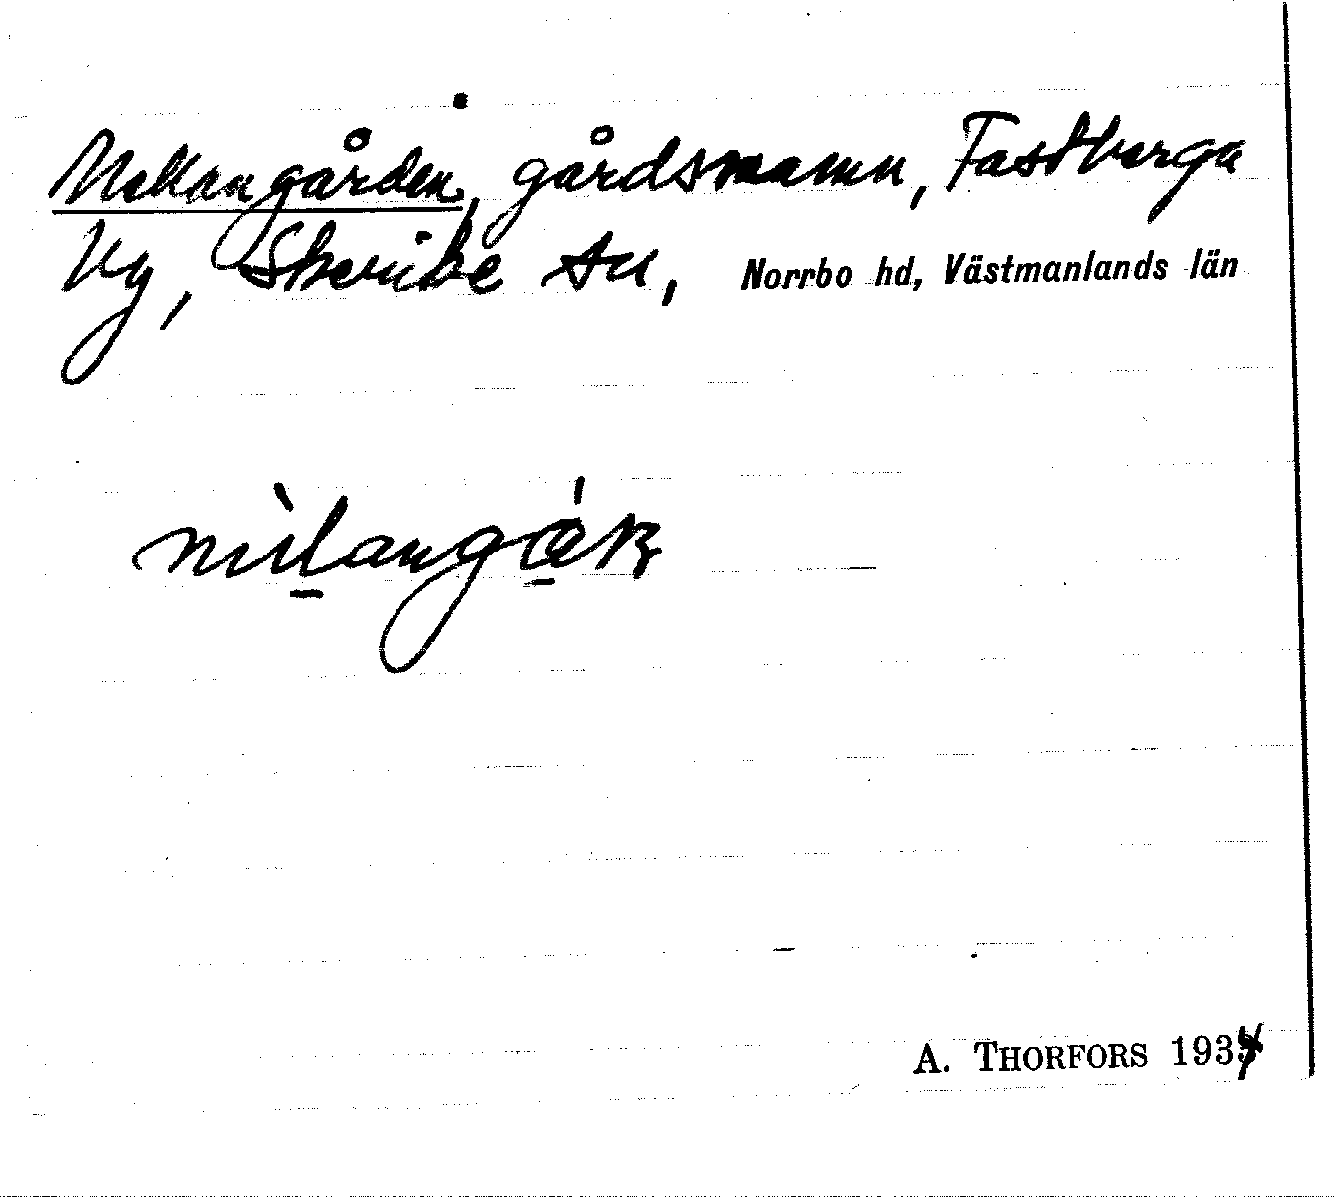 Mellangården, gårdsnamn, Fastberga
by, Skerike sn, Norrbo hd, Västmanlands län
A. THORFORS 1934